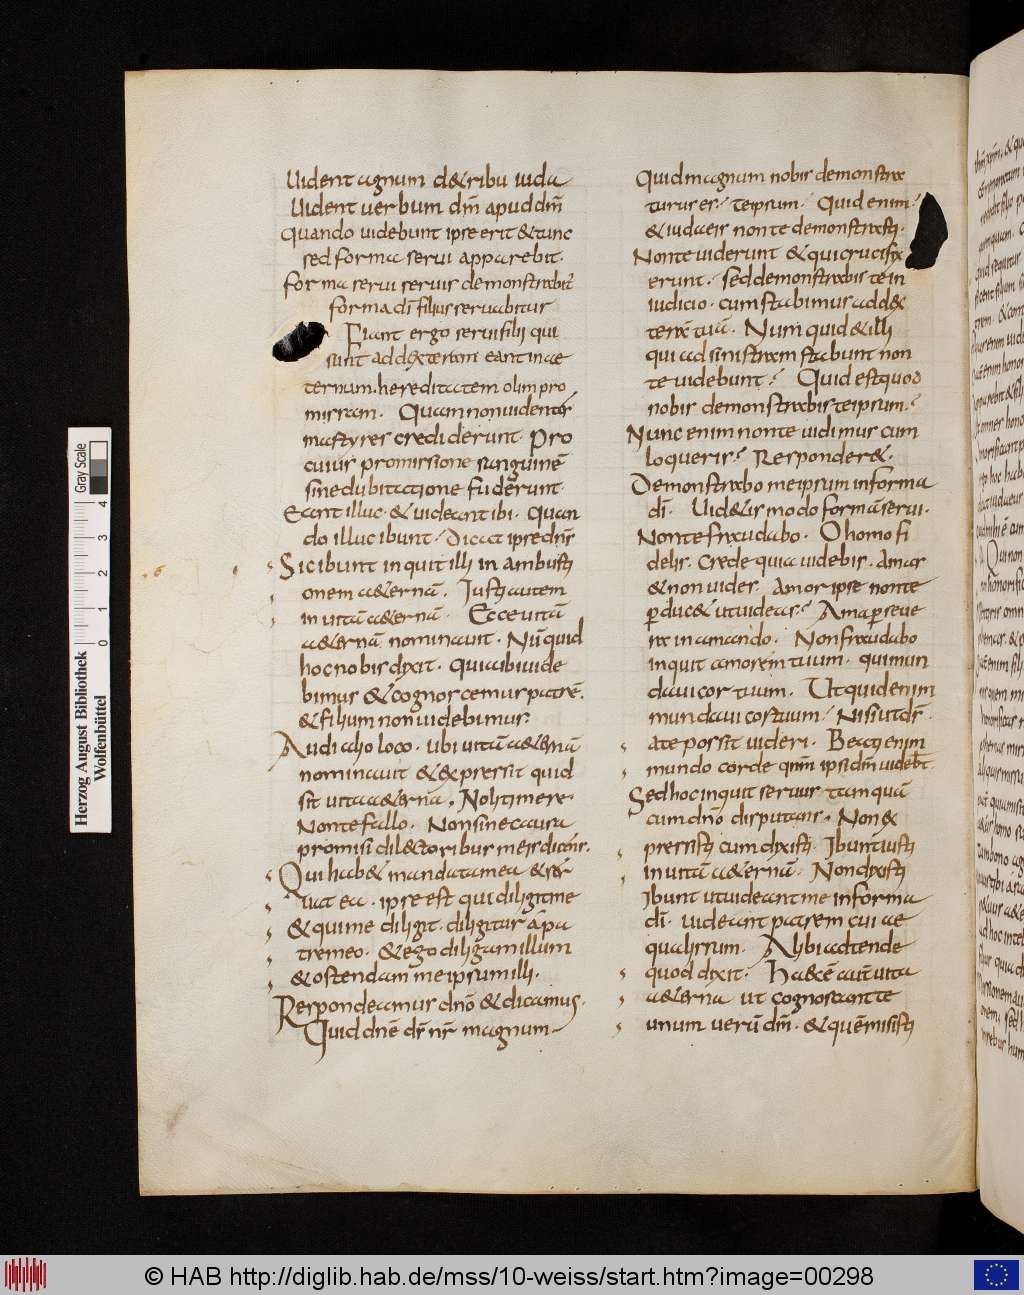 Uident agnum detribu iuda
Uident uerbum dm̄ apud dm̄
Quando uidebunt ipse erit &tunc
sed forma serui apparebit.
forma serui seruis demonstrabit̄
forma dī filius seruabitur
Fiant ergo serui filii qui
sunt ad dexteram eant inae
ternam. hereditatem olim pro
missam. Quam nonuidentes
martyres crediderunt. Pro
cuius promissione sanguinē
sinedubitatione fuderunt.
Eant illuc. & uideant ibi. Quan
do illuc ibunt. Dicat ipse dn̄s
Sic ibunt inquit illi in ambusti
onem aeternā. Iusti autem
in uitā aeternā. Ecce uitā
a&ernā nominauit. Nūquid
hoc nobis dixit. quia ibi uide
bimus & cognoscemus patrē.
& filium non uidebimus.
Audi alio loco. ubi uitā a&ernā
nominauit & expressit quid
sit uita a&erna. Noli timere.
Non te fallo. Non sine causa
promisi dilectoribus meis dicens.
Qui hab& mandata mea & ser
uat ea. ipse est qui diligit me
& qui me diligit. diligitur a pa
tre meo. & ego diligam illum
& ostendam me ipsum illi.
Respondeamus dn̄o & dicamus.
Quid dn̄e ds̄ nr̄ magnum
Quid magnum nobis demonstra
turus es? teipsum. Quid enim?
& iudaeis non te demonstrasti.
Non te uiderunt & qui crucifix
erunt? sed demonstrabis te in
iudicio. cum stabimus ad dex
terā tuā. Numquid & illi
qui ad sinistram stabunt non
te uidebunt? Quid est quod
nobis demonstrabis teipsum?
Nunc enim non te uidimus cum
loqueris? Responder&.
Demonstrabo meipsum in forma
dī. Uid&is modo formā serui.
Non te fraudabo. O homo fi
delis. crede quia uidebis. Amas
& non uides. Amor ipse non te
ꝑduc& ut uideas? Ama ꝑseue
ra in amando. Non fraudabo
inquit amorem tuum. qui mun
daui cor tuum. Ut quid enim
mundaui cor tuum? Nisi ut ds̄
a te possit uideri. Beati enim
mundo corde qnm̄ ipsi dm̄ uidebt̄.
Sed hoc inquit seruus tamquā
cum dn̄o disputans. Non ex
pressisti cum dixisti. Ibunt iusti
in uitā a&ernā. Non dixisti
Ibunt ut uideant me in forma
dī. uideant patrem cui ae
qualis sum. Alibi adtende
quod dixit. Haec ē autē uita
a&erna ut cognoscant te
unum uerū dm̄. & quē misisti
Gray Scale
0 1 2 3 4
Herzog August Bibliothek
Wolfenbüttel
© HAB http://diglib.hab.de/mss/10-weiss/start.htm?image=00298